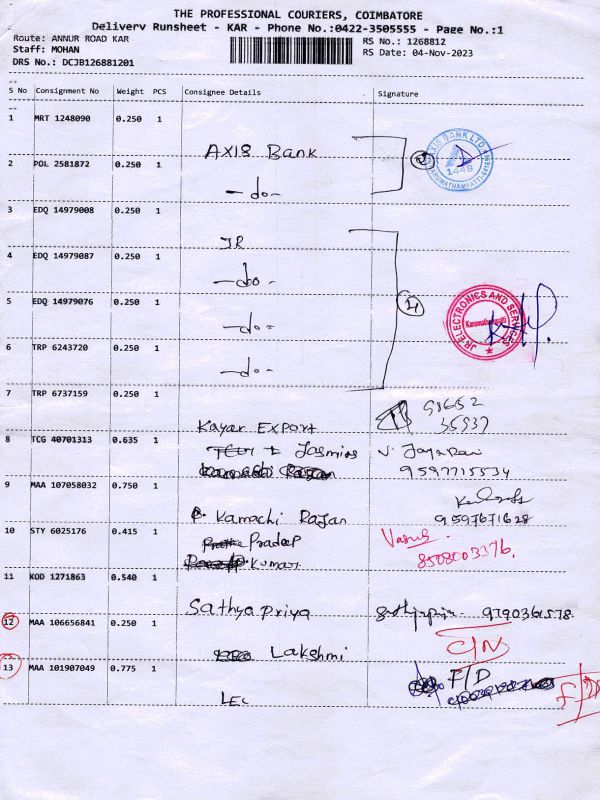 THE PROFESSIONAL COURIERS, COIMBATORE
Delivery Runsheet - KAR - Phone No.:0422-3505555 - Page No.:1
Route: ANNUR ROAD KAR
Staff: MOHAN
DRS No.: DCJB126881201
RS No.: 1268812
RS Date: 04-Nov-2023
S No Consignment No Weight PCS Consignee Details Signature
1 MRT 1248090 0.250 1
AXIS Bank
2
AXIS BANK LTD
1448
KARUMATHAMPATTI-641696
2 POL 2581872 0.250 1
-do-
3 EDQ 14979008 0.250 1
JR
4 EDQ 14979087 0.250 1
-do-
4
5 EDQ 14979076 0.250 1
-do-
JR ELECTRONICS AND SERVICES
Karumathampatti
6 TRP 6243720 0.250 1
-do-
7 TRP 6737159 0.250 1
Kayar Export
98652
35937
8 TCG 40701313 0.635 1
Jasmine
V. Jayaram
9597715534
9 MAA 107058032 0.750 1
P. Kamachi Rajan
9597671628
10 STY 6025176 0.415 1
Pradeep
Kumar
8508003376.
11 KOD 1271863 0.540 1
Sathya Priya
Sathyapriya 9790361578
12 MAA 106656841 0.250 1
Lakshmi
C/N
13 MAA 101907049 0.775 1
LEC
F/D
F/D